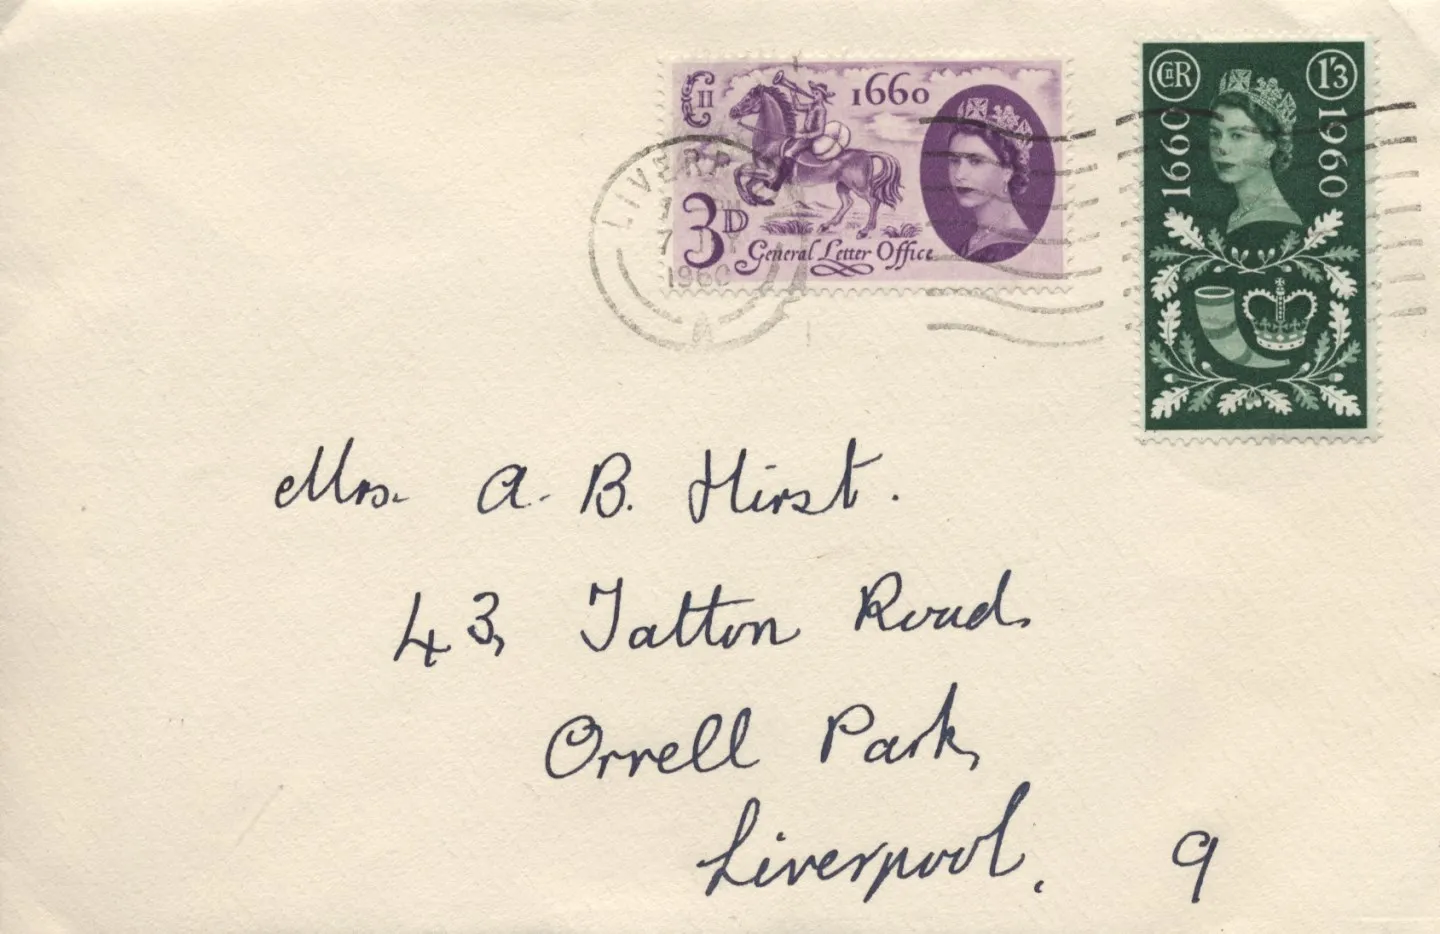 E II R
1660
3D
General Letter Office
EIIR
1'3
1660
1960
LIVERPOOL
7 JLY
1960
Mrs. A. B. Hirst.
43, Tatton Road,
Orrell Park,
Liverpool, 9